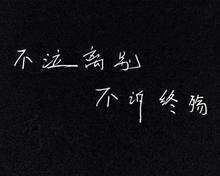 不泣离别
不诉终殇